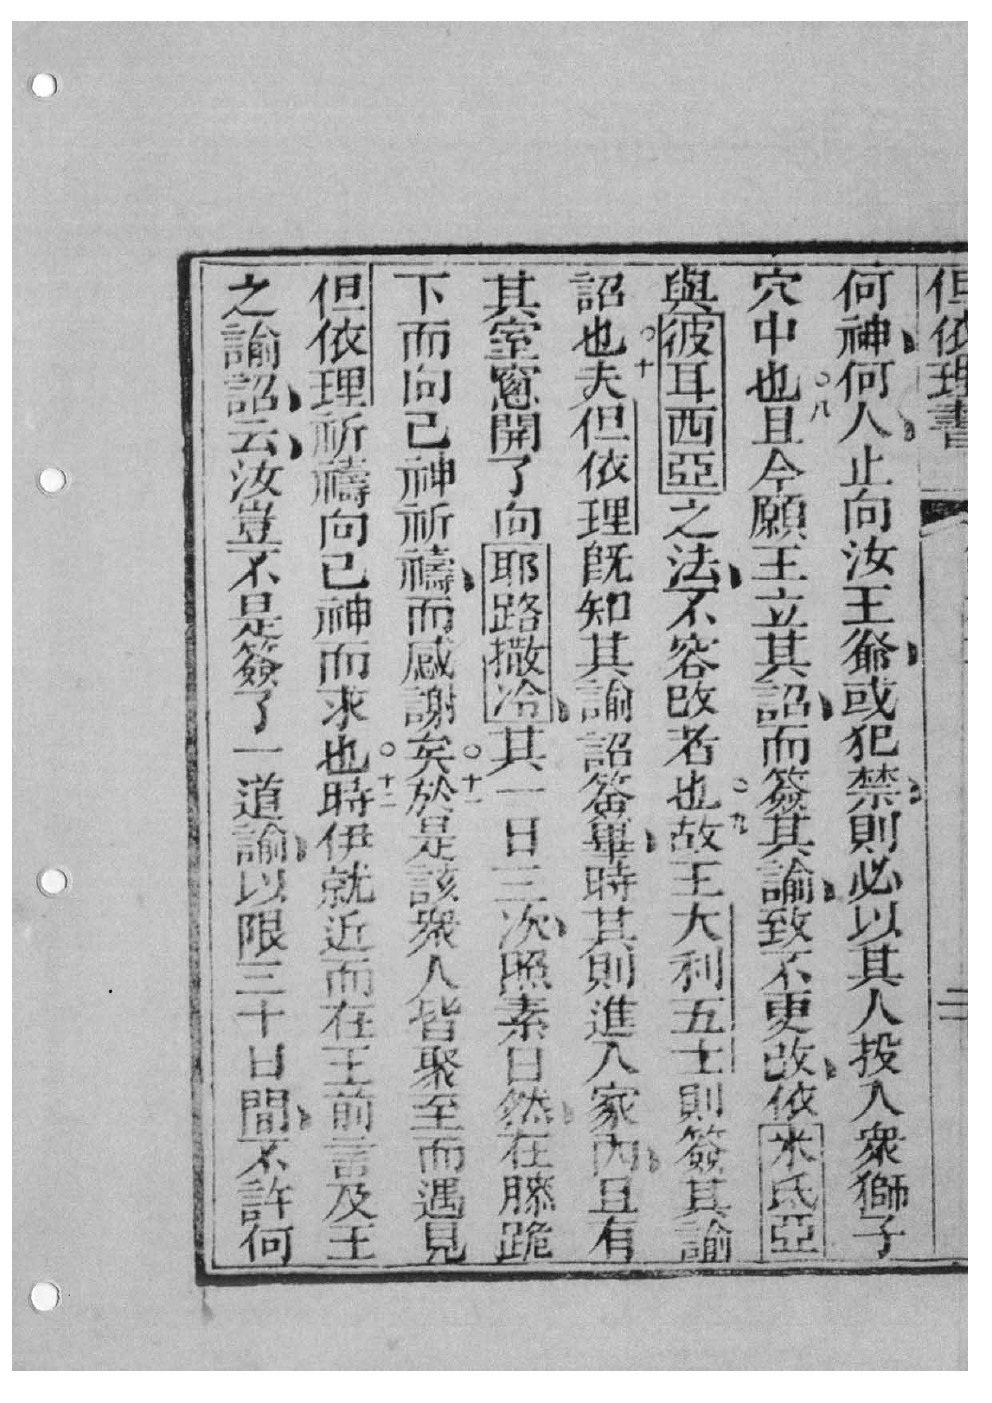 但依理書
何神何人止向汝王爺或犯禁則必以其人投入衆獅子
穴中也○八且今願王立其詔而簽其諭致不更改依米氐亞
與彼耳西亞之法不容改者也○九故王大利五士則簽其諭
詔也○十夫但依理既知其諭詔簽畢時其則進入家內且有
其室窻開了向耶路撒冷其一日三次照素日然在膝跪
下而向己神祈禱而感謝矣○十一於是該衆人皆聚至而遇見
但依理祈禱向己神而求也○十二時伊就近而在王前言及王
之諭詔云汝豈不是簽了一道諭以限三十日間不許何